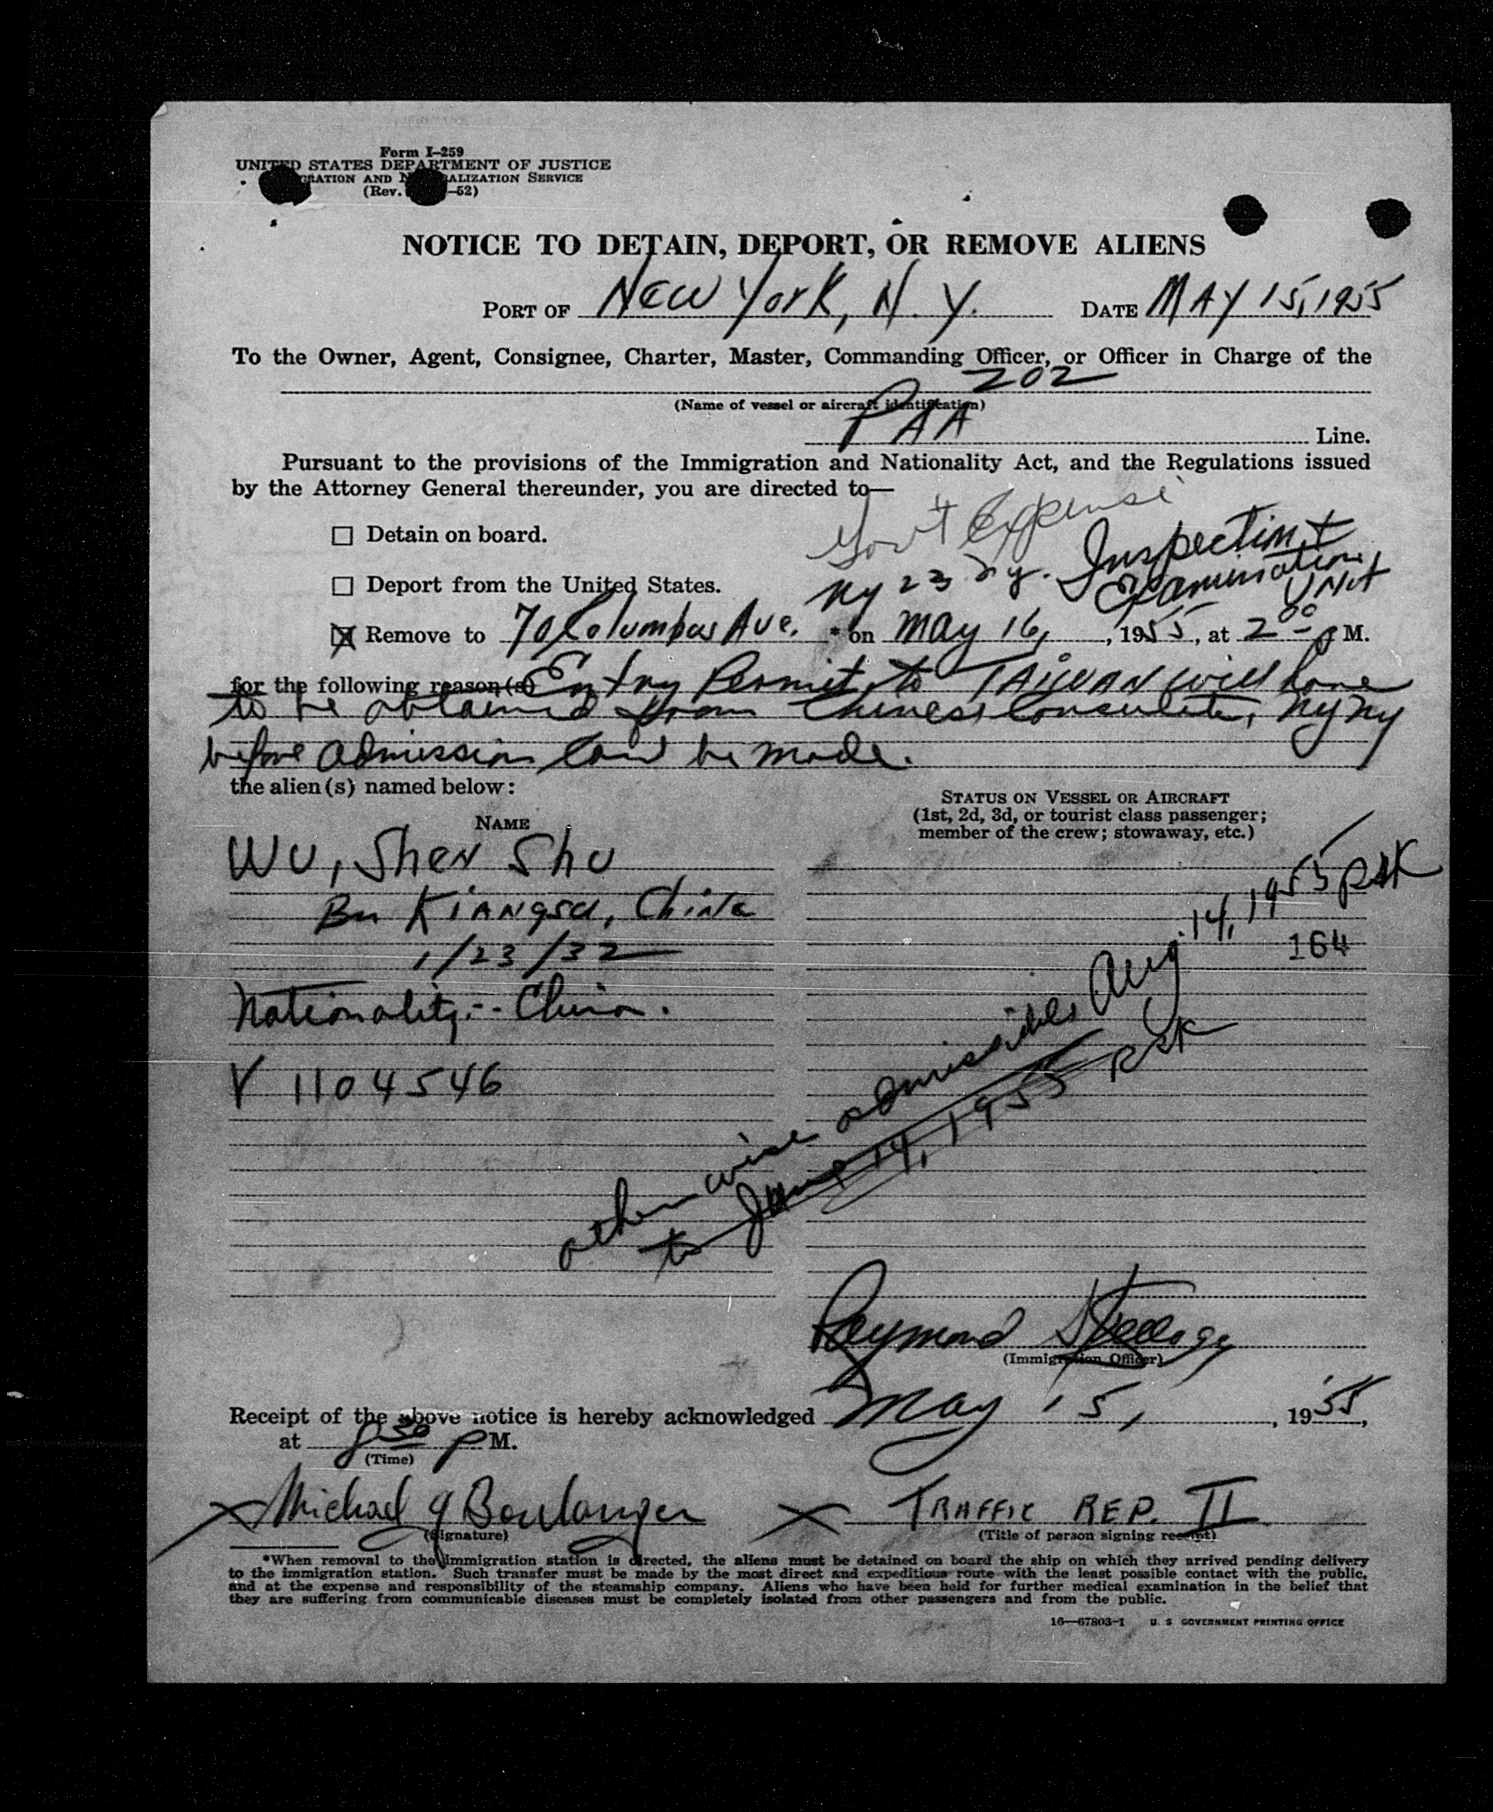 Form I-259
UNITED STATES DEPARTMENT OF JUSTICE
IMMIGRATION AND NATURALIZATION SERVICE
(Rev. -52)
NOTICE TO DETAIN, DEPORT, OR REMOVE ALIENS
PORT OF New York, N. Y. DATE MAY 15, 1955
To the Owner, Agent, Consignee, Charter, Master, Commanding Officer, or Officer in Charge of the
202
(Name of vessel or aircraft identification)
PAA Line.
Pursuant to the provisions of the Immigration and Nationality Act, and the Regulations issued
by the Attorney General thereunder, you are directed to—
Gov't Expense
☐ Detain on board.
NY 23 Ny. Inspection +
Examination
Unit
☐ Deport from the United States.
☒ Remove to 70 Columbus Ave. * on May 16, , 1955, at 2 00 P M.
for the following reason(s) Entry Permit to TAIWAN will have
to be obtained from Chinese Consulate, NY NY
before admission can be made.
the alien(s) named below:
STATUS ON VESSEL OR AIRCRAFT
(1st, 2d, 3d, or tourist class passenger;
member of the crew; stowaway, etc.)
NAME
Wu, Shen Shu
Bn Kiangsu, China
1/23/32
Nationality:- China.
V 1104546
164
otherwise admissible Aug. 14, 1955 RSK
to June 14, 1955 RSK
Raymond
(Immigration Officer)
Receipt of the above notice is hereby acknowledged May 15, , 1955,
at 8 30 P M.
(Time)
X Michael J Boulanger X TRAFFIC REP. II
(Signature) (Title of person signing receipt)
*When removal to the immigration station is directed, the aliens must be detained on board the ship on which they arrived pending delivery
to the immigration station. Such transfer must be made by the most direct and expeditious route with the least possible contact with the public,
and at the expense and responsibility of the steamship company. Aliens who have been held for further medical examination in the belief that
they are suffering from communicable diseases must be completely isolated from other passengers and from the public.
16—67803-1 U. S. GOVERNMENT PRINTING OFFICE